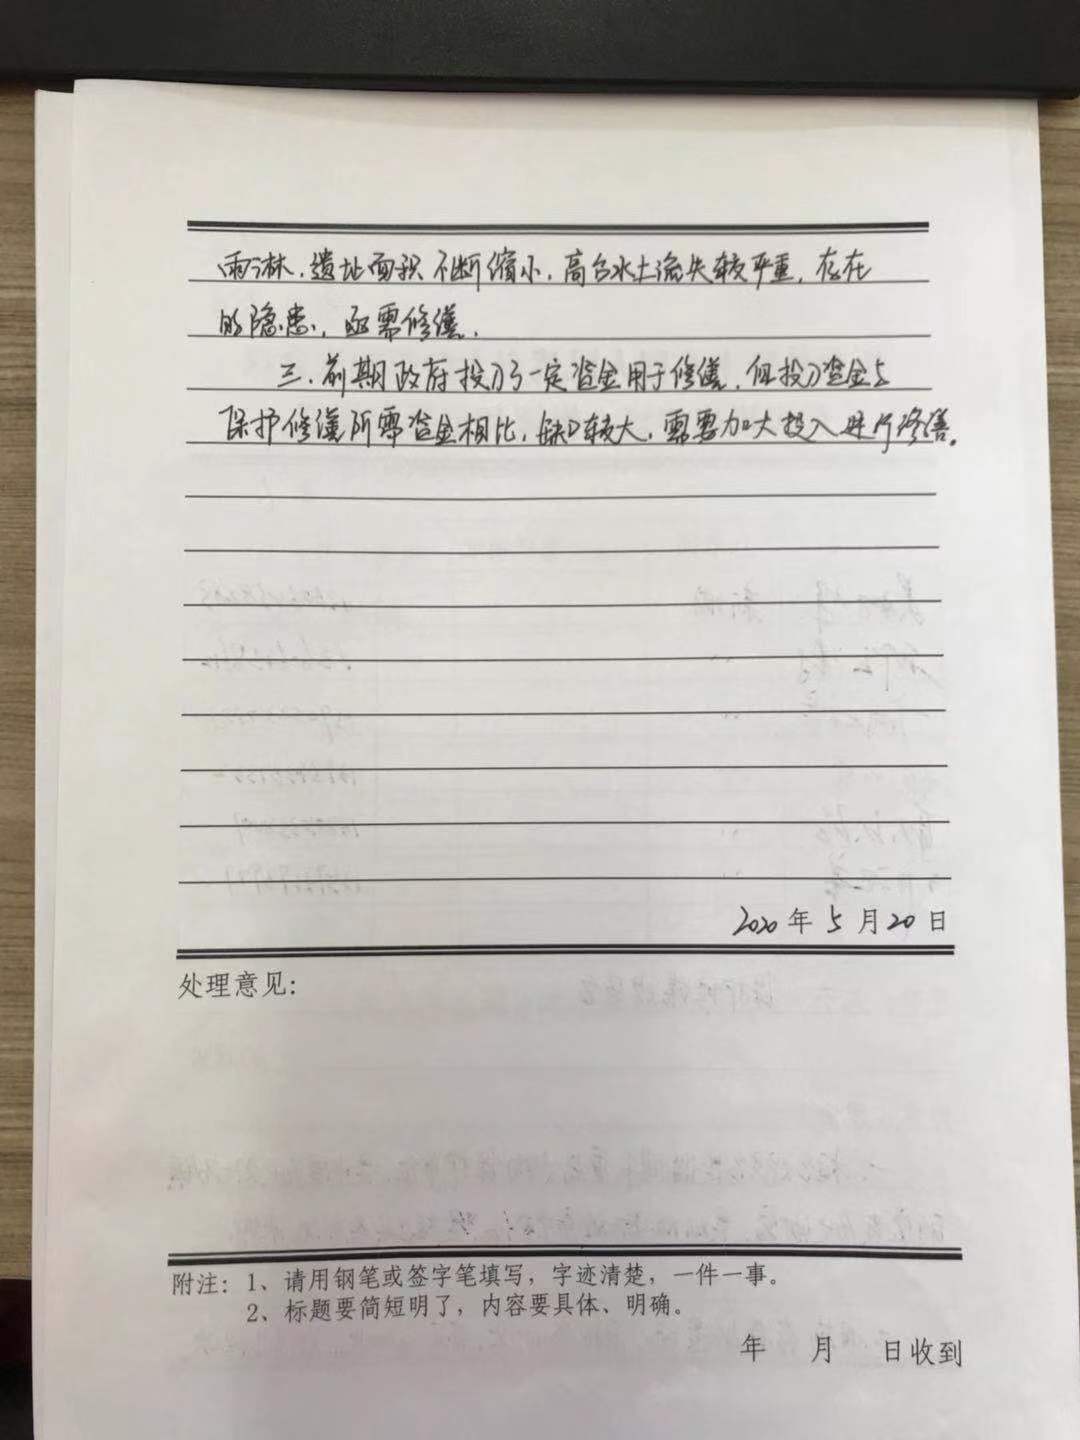 雨淋,遗址面积不断缩小,高台水土流失较严重,存在
的隐患,亟需修缮.
三.前期政府投入了一定资金用于修缮,但投入资金与
保护修缮所需资金相比,缺口较大,需要加大投入进行修缮。
2020年5月20日
处理意见:
附注:1、请用钢笔或签字笔填写,字迹清楚,一件一事。
2、标题要简短明了,内容要具体、明确。
年 月 日收到